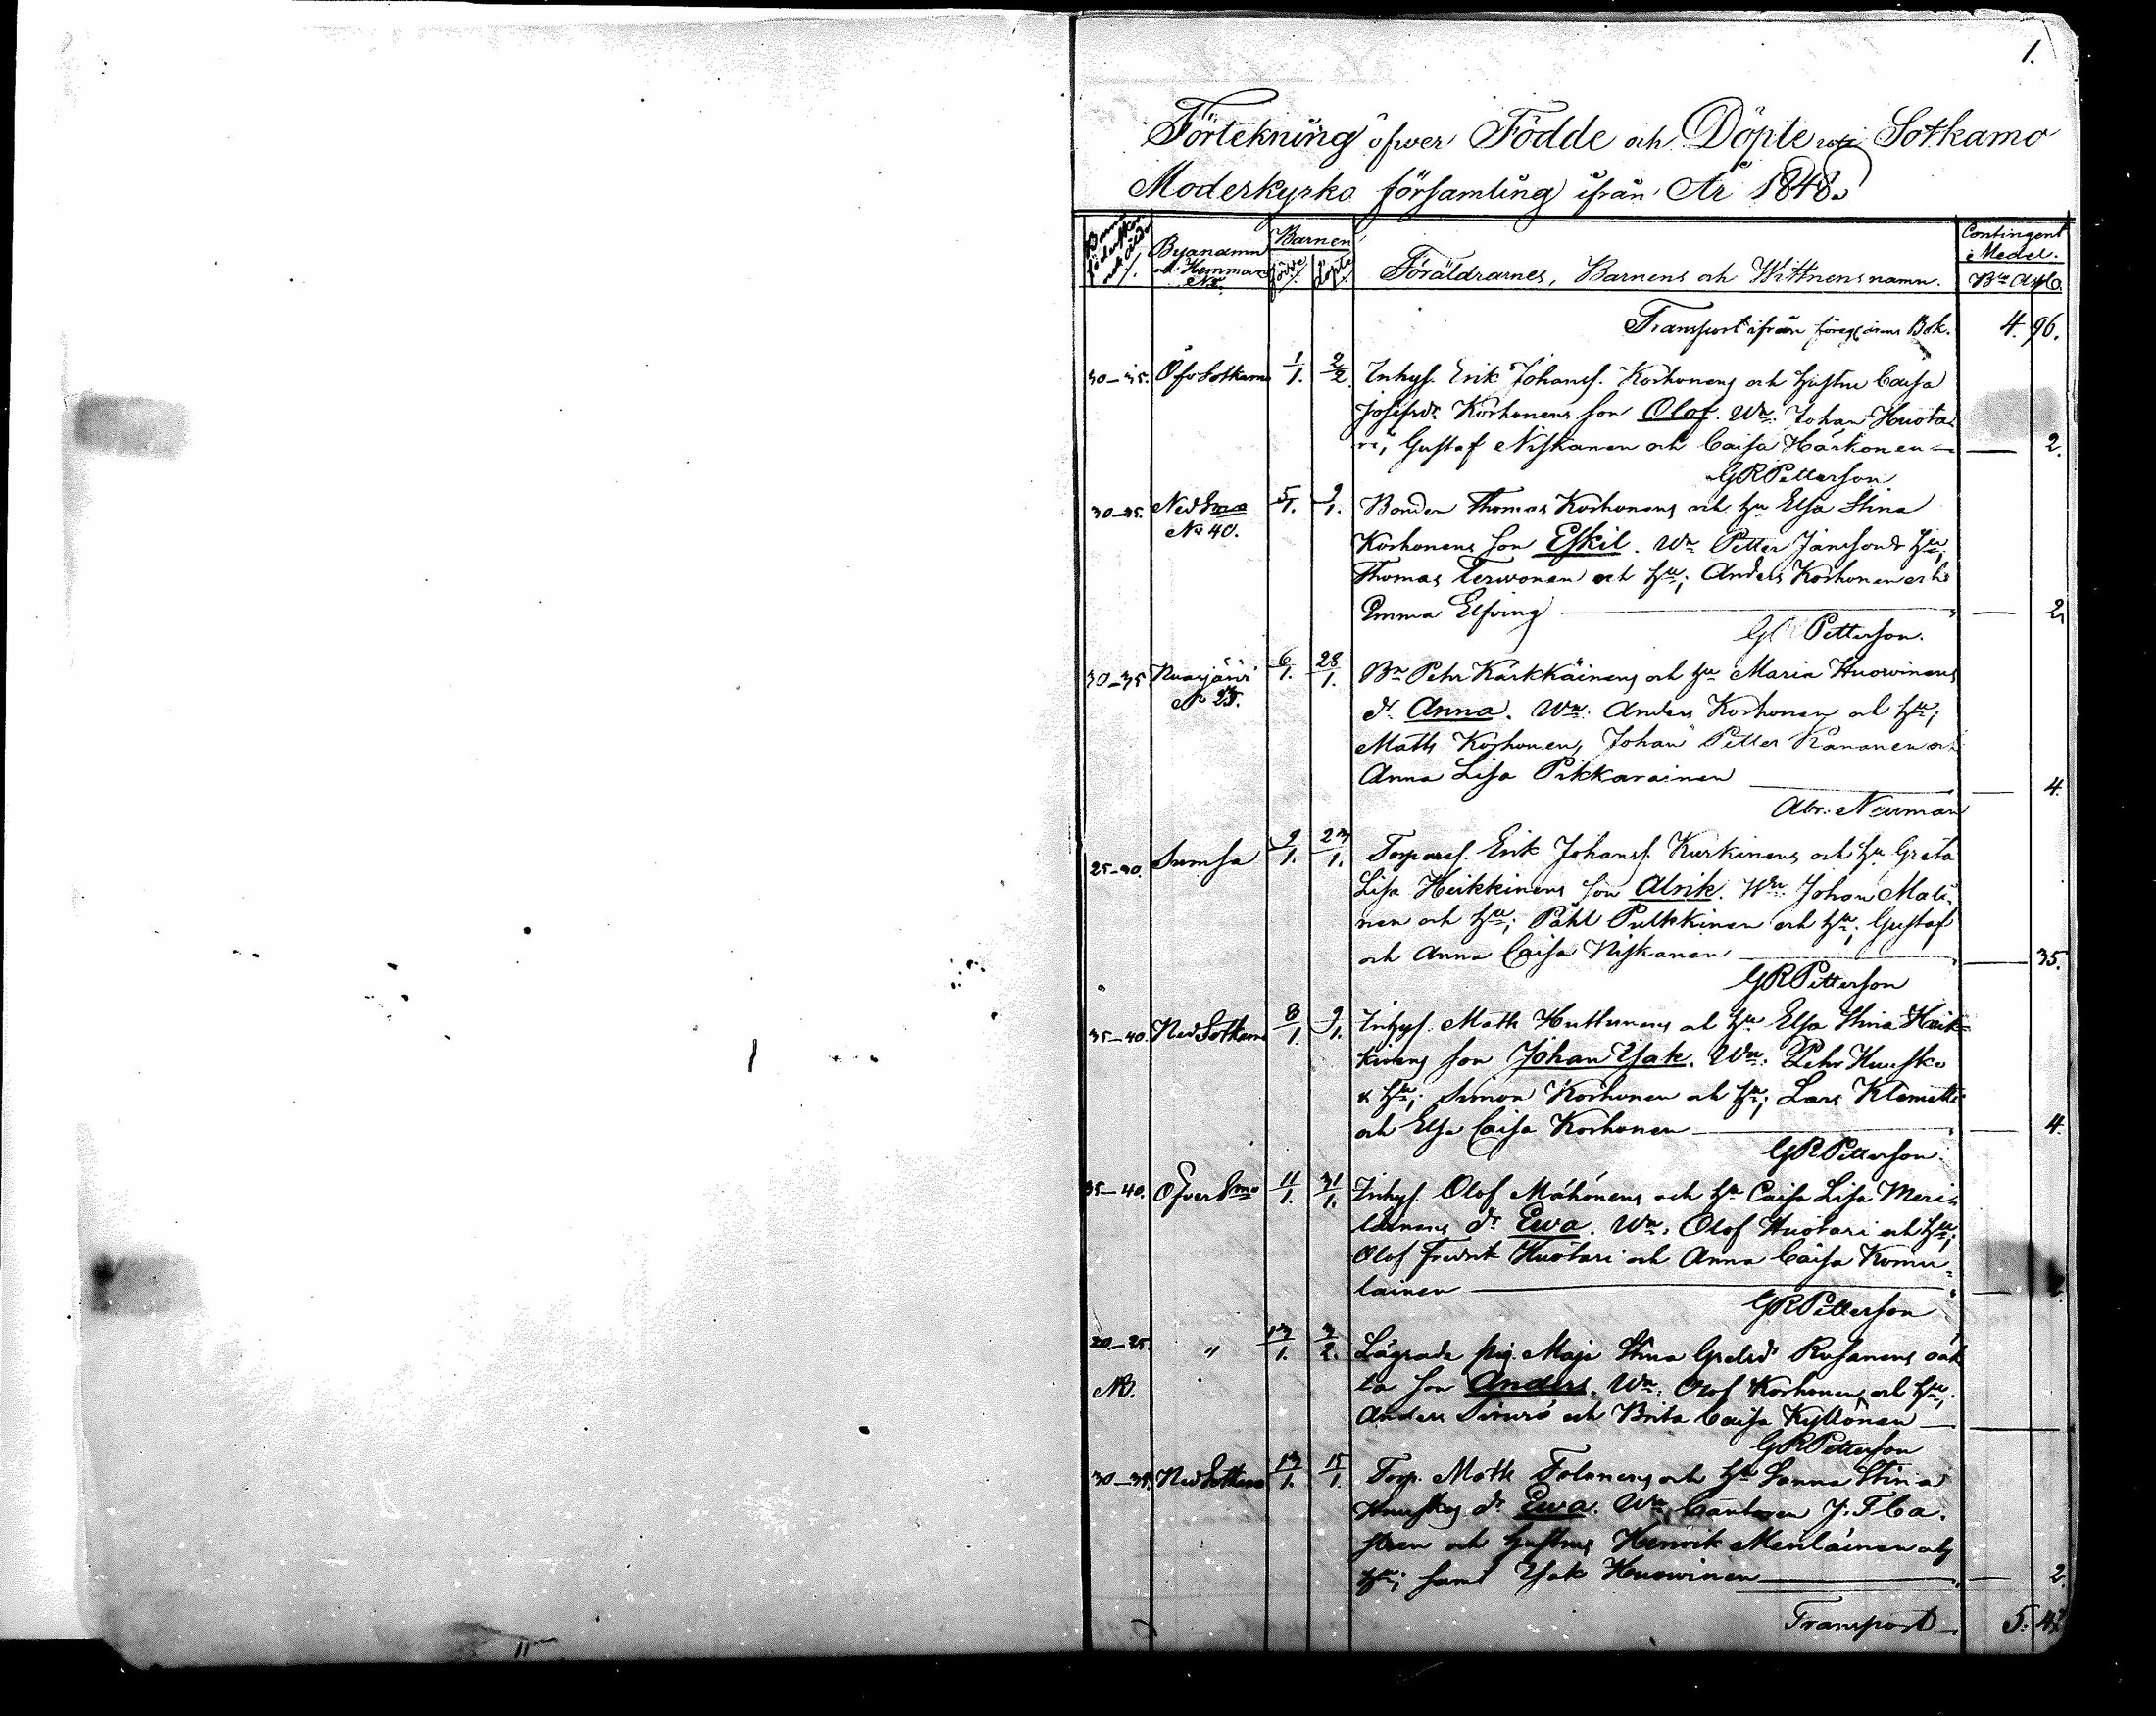 1.
Förtekning öfwer Födde och Döpte uti Sotkamo
Moderkyrko församling ifrån År 1848.
Byanamn och Hemmans No. Barnen födde döpte Föräldrarnes, Barnens och Wittnens namn. Contingent Medel.
Transport ifrån föreg. Bok. 4. 96.
30–35. Öfv Sotkamo 1/1. 2/2. Inhys. Erik Johanss. Korhonens och hustru Caisa
Josefsdr Korhonens son Olof. Wn: Johan Huota-
ri, Gustaf Niskanen och Caisa Härkönen — 2.
GRPetterson
30–35. Ned Smo 5/1. 9/1. Bonden Thomas Korhonens och hu Elsa Stina
No 40. Korhonens son Eskil. Wn Petter Jansson & hu;
Thomas Terwonen och hu; Anders Korhonen och
Emma Elfving — 2.
G Petterson.
30–35 Nuasjärvi 6/1. 28/1. Bn Pehr Kärkkäinens och hu Maria Huowinens
No 25. dr. Anna. Wn: Anders Korhonen och hu;
Math Korhonen, Johan Petter Kananen och
Anna Lisa Pikkarainen — 4.
Abr. Neuman
25–30. Sumsa 9/1. 23/1. Torpares. Erik Johanss. Kurkinens och hu Greta
Lisa Heikkinens son Alrik. Wn: Johan Mali-
nen och hu; Påhl Pulkkinen och hu; Gustaf
och Anna Caisa Niskanen — 35.
GRPetterson
35–40. Ned Sotkamo 8/1. 9/1. Inhys. Math Huttunens och hu Elsa Stina Heik-
kinens son Johan Isak. Wn: Pehr Huusko
& hu; Simon Korhonen och hu; Lars Klemetti
och Elsa Caisa Korhonen — 4.
GRPetterson.
35–40. Öfver Smo 11/1. 31/1. Inhys. Olof Mähönens och hu Caisa Lisa Meri-
läinens dr Ewa. Wn: Olof Huotari och hu;
Olof Fredrik Huotari och Anna Caisa Komu-
lainen —
GRPetterson
20–25. " 13/1. 3/2. Lägrada pig. Maja Stina Gretsdr Rusanens oäk-
NB. ta son Anders. Wn: Olof Korhonen och hu;
Anders Sirwiö och Brita Caisa Kyllönen —
GRPetterson
30–35. Ned Sotkamo 13/1. 15/1. Torp. Math Tolonens och hu Sanna Stina
Huuskos dr Ewa. Wn: Cantoren J. F. Ca-
stren och hustru, Henrik Meriläinen och
hu; samt Isak Huowinen — 2.
Transport — 5. 47